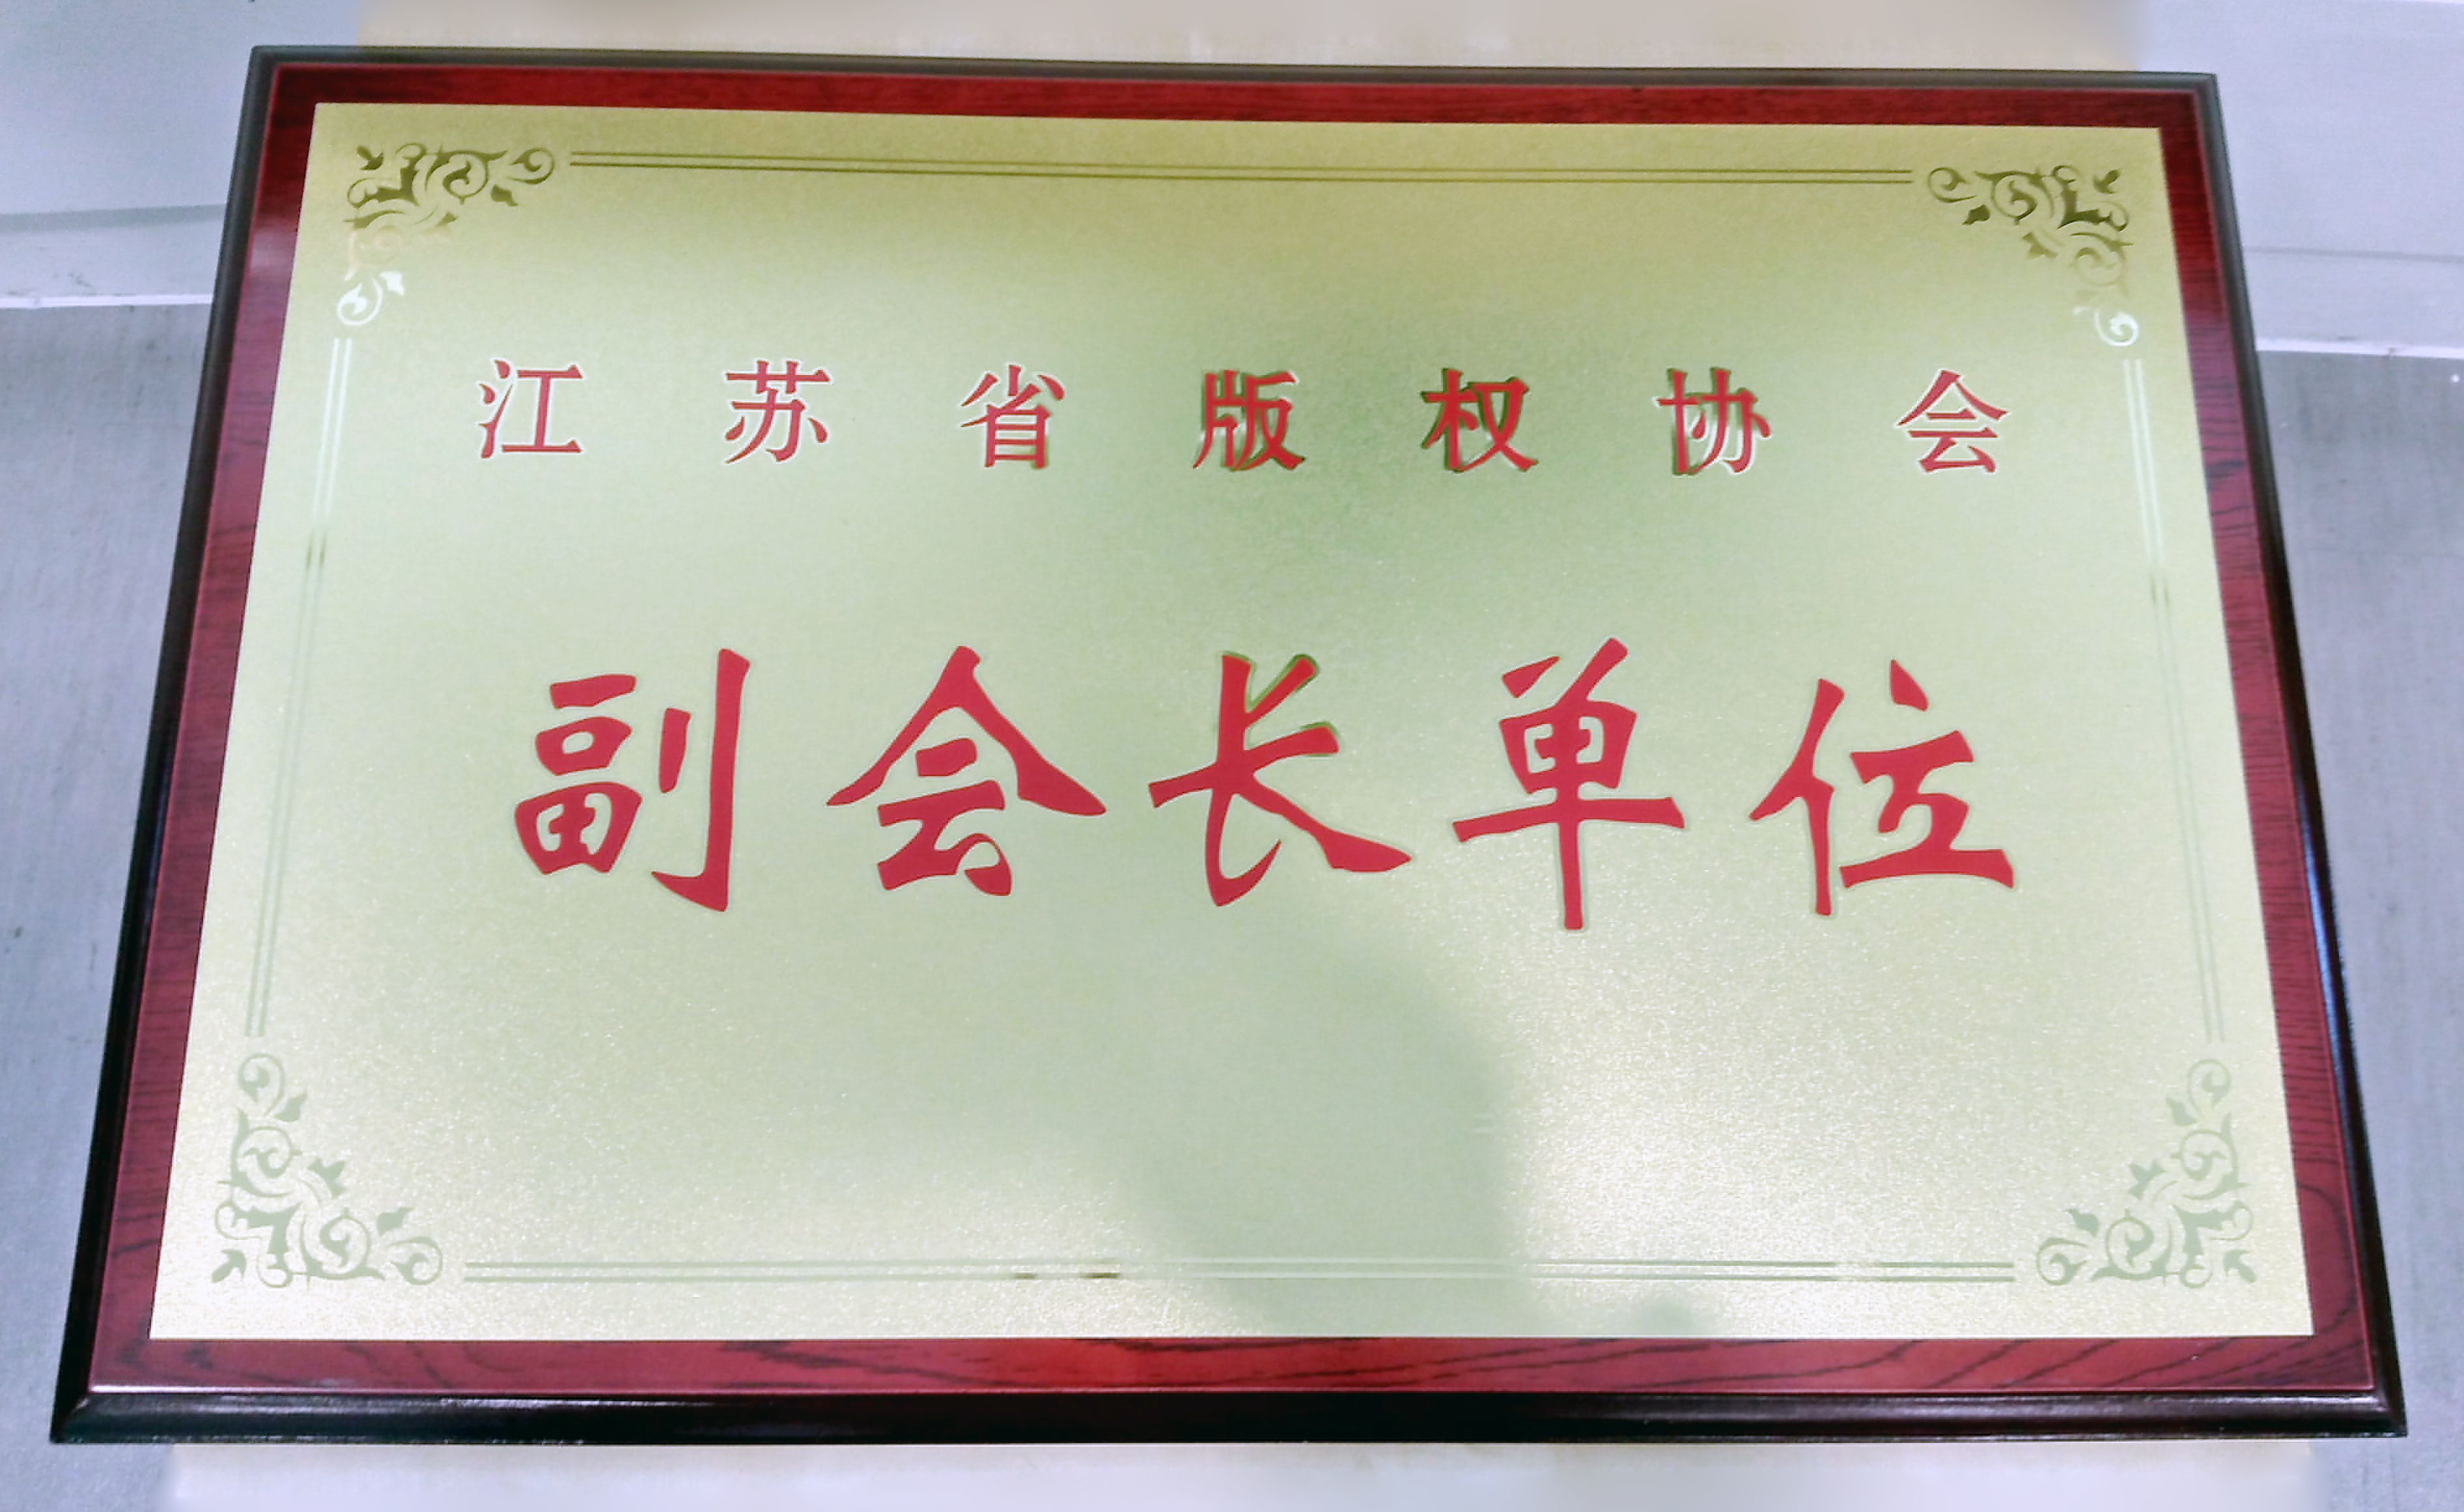 江苏省版权协会
副会长单位